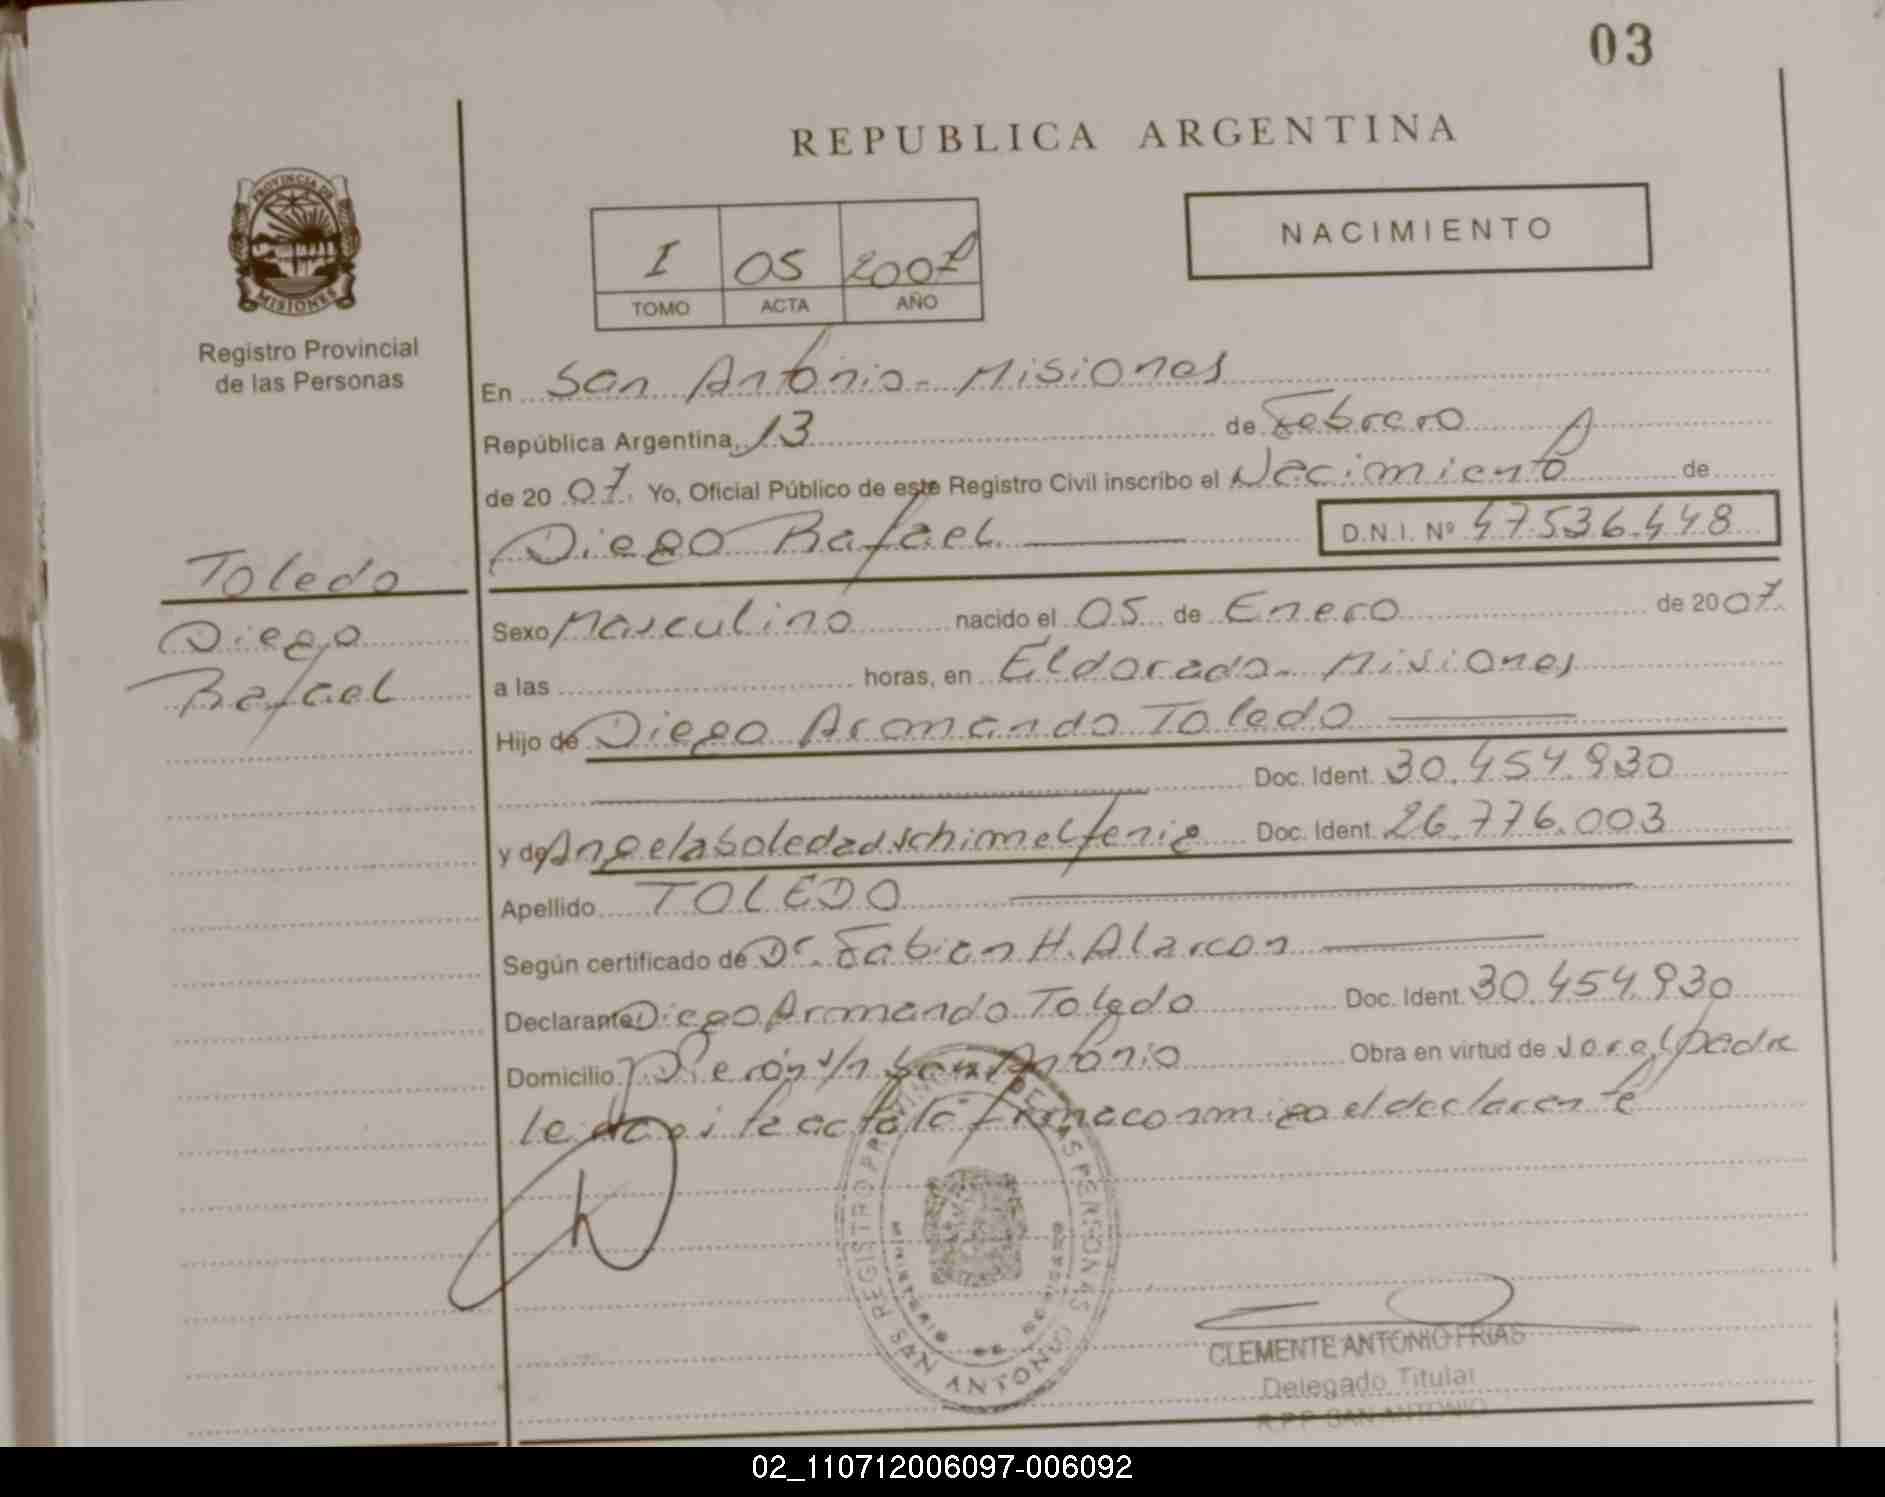 03
REPUBLICA ARGENTINA
PROVINCIA DE
MISIONES
Registro Provincial
de las Personas
NACIMIENTO
I 05 2007
TOMO ACTA AÑO
En San Antonio - Misiones
República Argentina, 13 de Febrero
de 20 07. Yo, Oficial Público de este Registro Civil inscribo el Nacimiento de
Diego Rafael D.N.I. Nº 47.536.448
Toledo
Diego
Rafael
Sexo Masculino nacido el 05 de Enero de 2007.
a las horas, en Eldorado - Misiones
Hijo de Diego Armando Toledo
Doc. Ident. 30.454.930
y de Angela Soledad Schimelfenig Doc. Ident. 26.776.003
Apellido TOLEDO
Según certificado de Dr. Fabian H. Alarcon
Declarante Diego Armando Toledo Doc. Ident. 30.454.930
Domicilio s/n San Antonio Obra en virtud de ser el padre
leda esta acta la firma conmigo el declarante
REGISTRO PROVINCIAL DE LAS PERSONAS
MINISTERIO DE GOBIERNO
SAN ANTONIO
CLEMENTE ANTONIO FRIAS
Delegado Titular
R.P.P. SAN ANTONIO
02_110712006097-006092